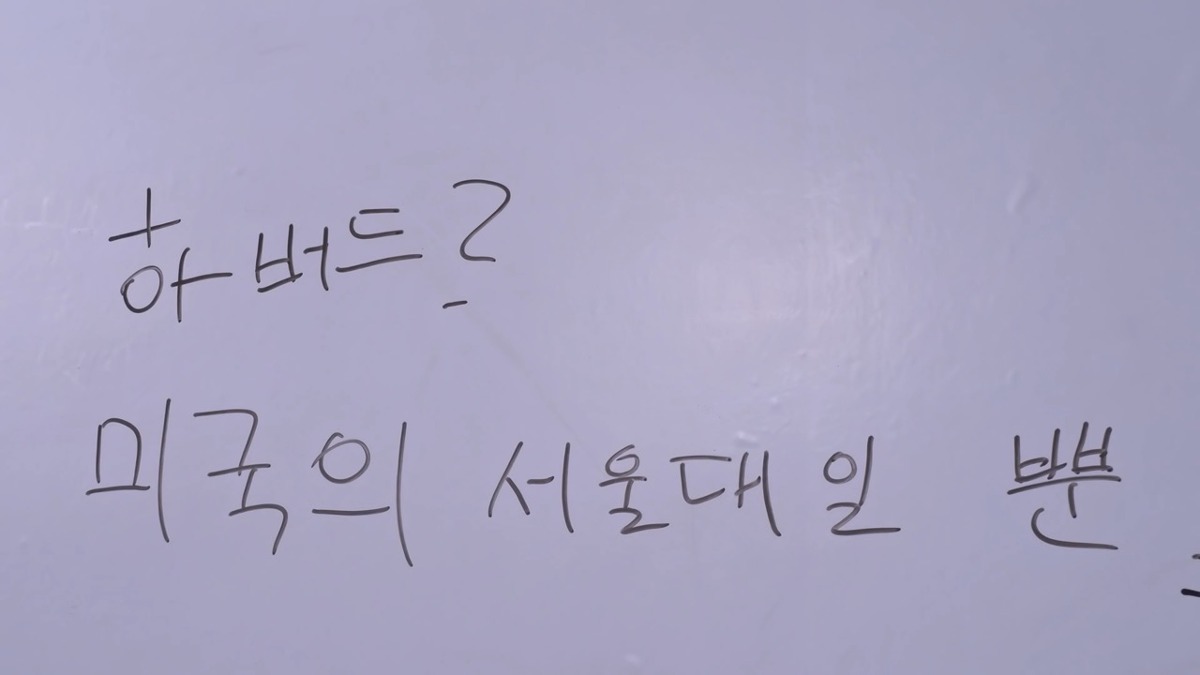 하버드?
미국의 서울대일 뿐